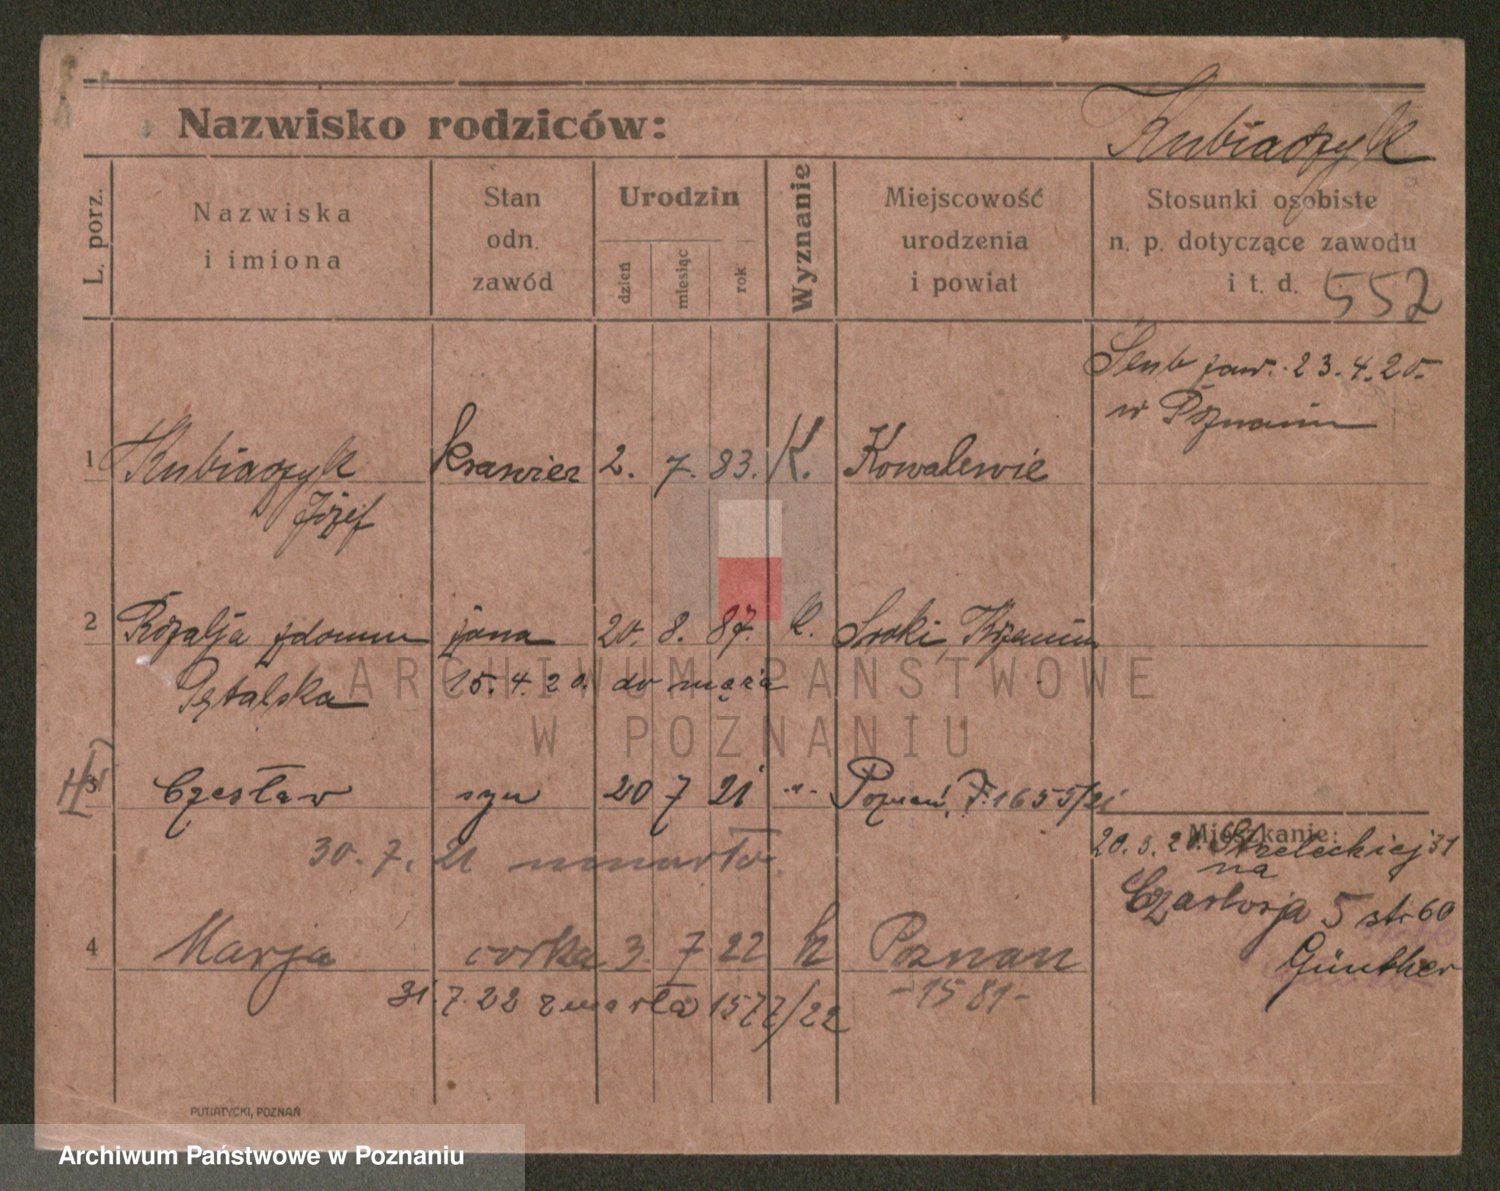 Nazwisko rodziców: Kubiaczyk
L. porz.
Nazwiska
i imiona
Stan
odn.
zawód
Urodzin
dzień
miesiąc
rok
Wyznanie
Miejscowość
urodzenia
i powiat
Stosunki osobiste
n. p. dotyczące zawodu
i t. d. 552
Ślub zaw. 23.4.20.
w Poznaniu
1 Kubiaczyk krawiec 2. 7. 83. K. Kowalewie
Józef
2 Rozalja zdomu żona 20. 8. 87. k. Sroki,
15.4.20. do męża
ARCHIWUM PAŃSTWOWE
W POZNANIU
3 Czesław syn 20 7 21 -"- Poznań, F. 1655/21
30.7.21 umarło
Mieszkanie:
20.3.20. Streleckiej 31
na
5 str 60
Günther
4 Marja córka 3. 7 22 k Poznan
-1581-
31.7.22 zmarła 1577/22
PUTIATYCKI, POZNAŃ
Archiwum Państwowe w Poznaniu